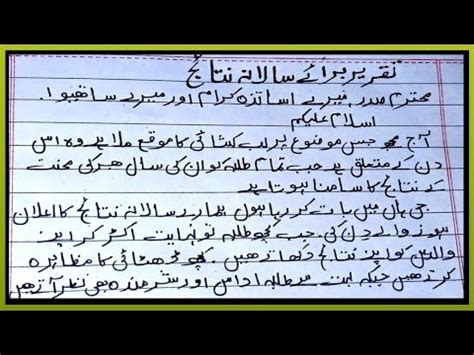 تقریر برائے سالانہ نتائج
محترم صدر، میرے اساتذہ کرام اور میرے ساتھیو!
اسلام علیکم
آج جس موضوع پر لب کشائی کا موقع ملا ہے وہ اس
دن کے متعلق ہے جب تمام طلبہ کو ان کی سال بھر کی محنت
کے نتائج کا سامنا ہوتا ہے
جی ہاں میں بات کر رہا ہوں ہمارے سالانہ نتائج کا اعلان
ہونے والے دن کی. جب کچھ طلبہ تو نہایت اکڑ کر اپنے
والدین کو اپنے نتائج دکھاتے ہیں. کچھ ڈھٹائی کا مظاہرہ
کرتے ہیں جبکہ بہت سے طلبہ اداس اور شرمندہ بھی نظر آتے ہیں